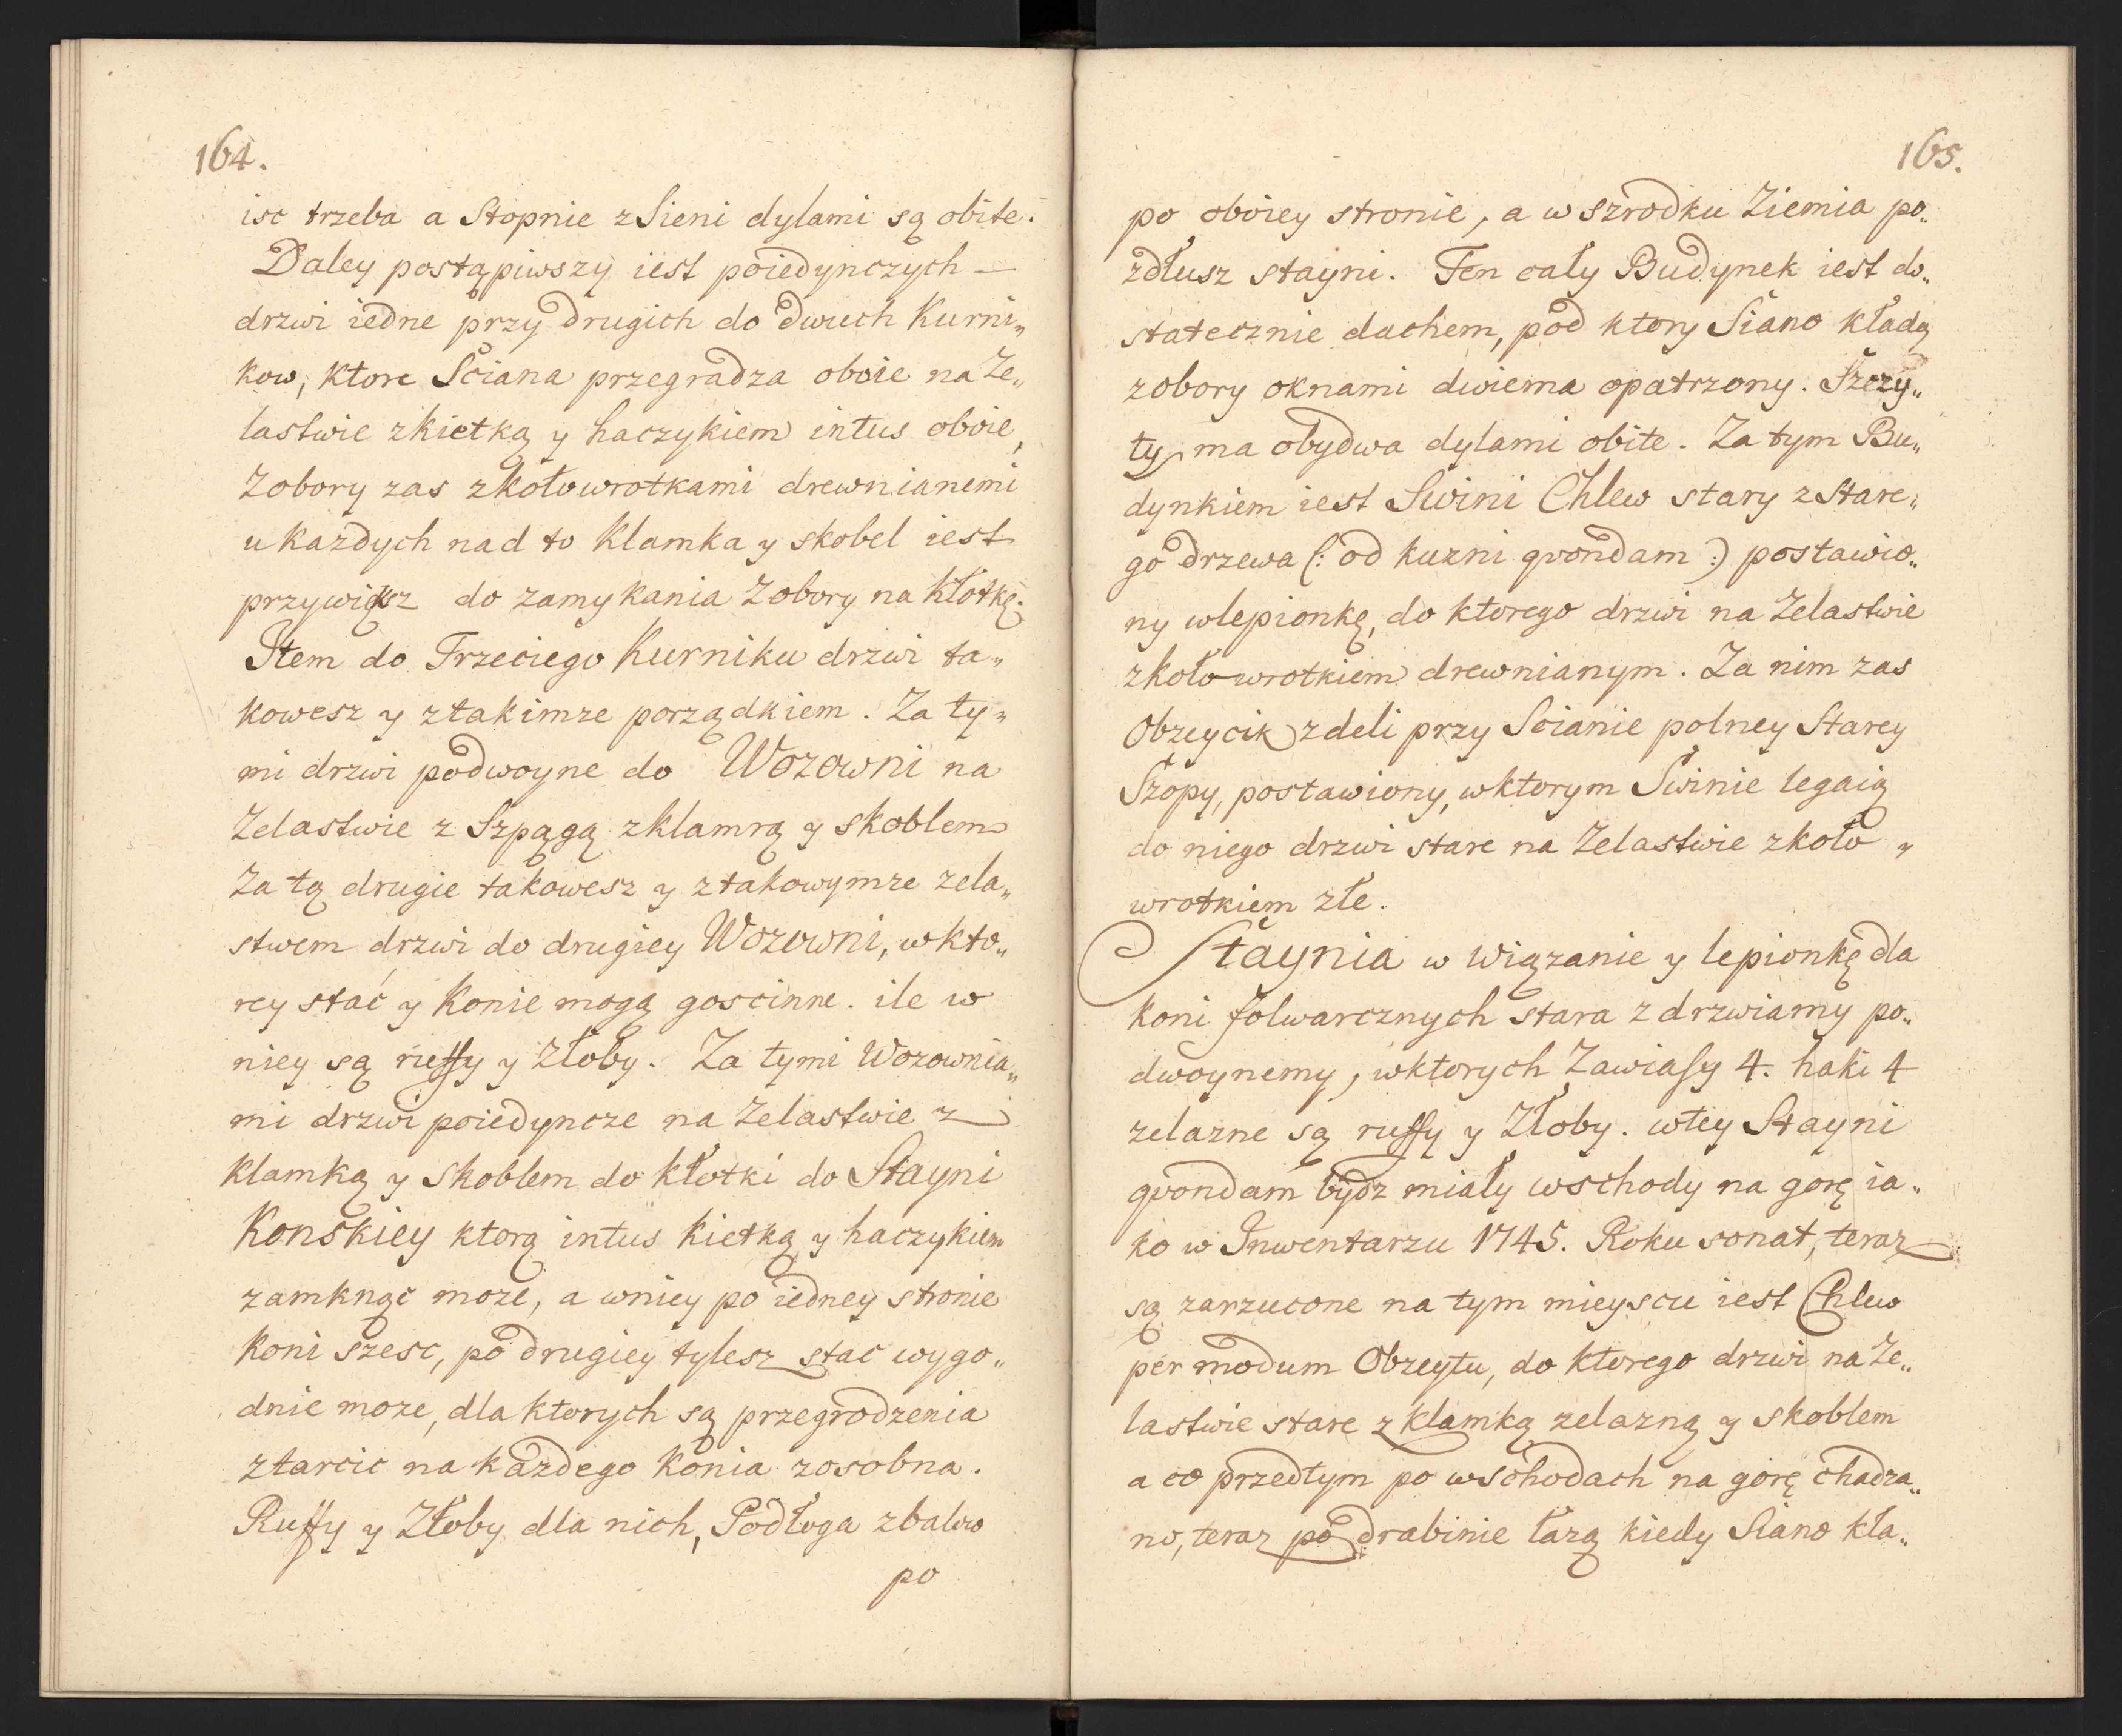 164.
isc trzeba a Stopnie z Sieni dylami są obite.
Daley postąpiwszy iest poiedynczych —
drzwi iedne przy drugich do dwuch Kurni„
kow, ktore Sciana przegradza oboie na Że„
lastwie z kietką y haczykiem intus oboie,
Zobory zas zkołowrotkami drewnianemi
u kazdych nad to Klamka y skobel iest
do zamykania Zobory na kłotkę.
Item do Trzeciego Kurniku drzwi ta„
kowesz y ztakimze porządkiem. Za ty„
mi drzwi podwoyne do Wozowni na
Żelastwie z Szpągą zklamrą y skoblem
Za tą drugie takowesz y ztakowymze zela„
stwem drzwi do drugiey Wozowni, w kto„
rey stać y Konie mogą goscinne. ile w
niey są ruffy y Złoby. Za tymi Wozownia„
mi drzwi poiedyncze na Żelastwie z
Klamką y Skoblem do kłotki do Stayni
Konskiey ktorą intus Kietką y haczykiem
zamknąc może, a wniey po iedney stronie
Koni szesc, po drugiey tylesz stac wygo„
dnie moze, dla ktorych są przegrodzenia
ztarcic na kazdego Konia zosobna.
Ruffy y Złoby dla nich, Podłoga zbalow
po
165.
po oboiey stronie, a w szrodku Ziemia po„
zdłusz stayni. Ten cały Budynek iest do„
statecznie dachem, pod ktory Siano kładą
zobory oknami dwiema opatrzony. Szczy„
ty ma obydwa dylami obite. Za tym Bu„
dynkiem iest Swini Chlew stary z Stare„
go drzewa (: od kuzni qvondam :) postawio„
ny wlepionkę, do ktorego drzwi na Żelastwie
zkołowrotkiem drewnianym. Za nim zas
Obzeycik z deli przy Scianie polney Starey
Szopy, postawiony, wktorym Swinie legaią
do niego drzwi stare na Żelastwie zkoło„
wrotkiem złe.
Staynia w wiązanie y lepionkę dla
Koni folwarcznych stara z drzwiamy po„
dwoynemy, wktorych Zawiasy 4. haki 4
zelazne są ruffy y Złoby. wtey Stayni
qvondam bydz miały wschody na gorę ia„
ko w Inwentarzu 1745. Roku sonat, teraz
są zarzucone na tym mieyscu iest Chlew
per modum Obzeytu, do ktorego drzwi na Że„
lastwie stare z klamką zelazną y skoblem
a co przedtym po wschodach na gorę chadza„
no, teraz po drabinie łazą kiedy Siano kła„